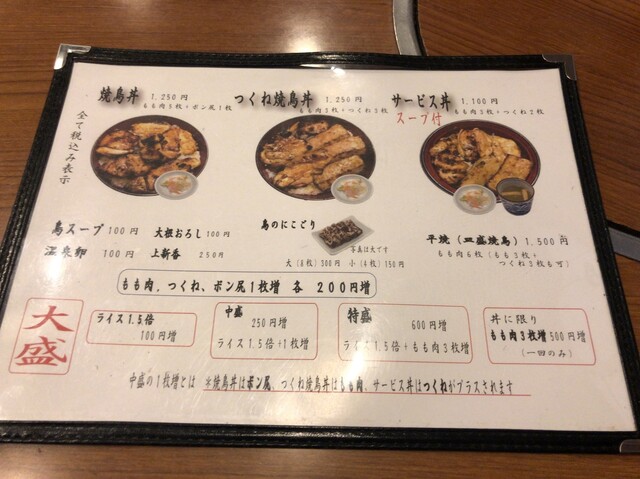 焼鳥丼 1,250円
もも肉3枚+ボン尻1枚
つくね焼鳥丼 1,250円
もも肉3枚+つくね3枚
サービス丼 1,100円
スープ付 もも肉3枚+つくね2枚
全て税込み表示
鳥スープ 100円
大根おろし 100円
温泉卵 100円
上新香 250円
鳥のにこごり
写真は大です
大(8枚)300円 小(4枚)150円
平焼(皿盛焼鳥)1,500円
もも肉6枚(もも3枚+
つくね3枚も可)
もも肉、つくね、ボン尻1枚増 各 200円増
大盛
ライス1.5倍
100円増
中盛
250円増
ライス1.5倍+1枚増
特盛
600円増
ライス1.5倍+もも肉3枚増
丼に限り
もも肉3枚増500円増
(一回のみ)
中盛の1枚増とは ※焼鳥丼はボン尻、つくね焼鳥丼はもも肉、サービス丼はつくねがプラスされます